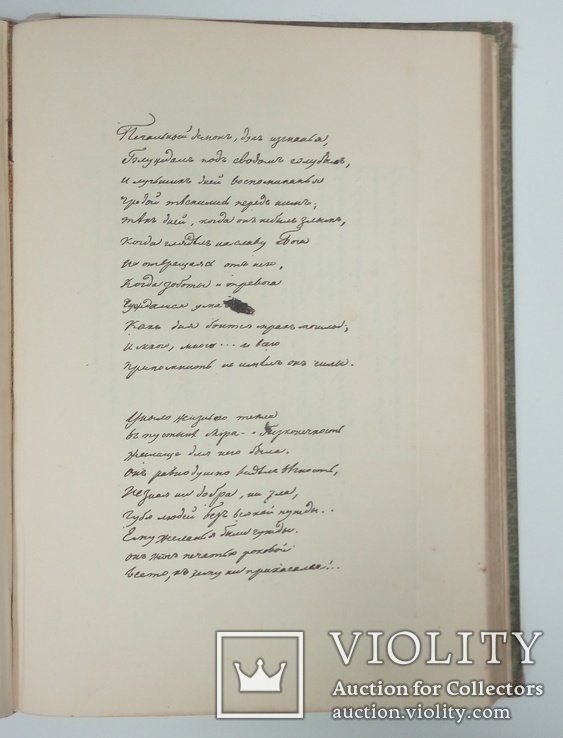 Печальный демонъ, духъ изгнанья,
Блуждалъ подъ сводомъ голубымъ,
И лучшихъ дней воспоминанья
Чредой тѣснились передъ нимъ;
Тѣхъ дней, когда онъ не былъ злымъ,
Когда глядѣлъ на славу Бога
Не отвращаясь отъ него,
Когда заботы и тревога
Чуждалися ума
Какъ дня боится мракъ могилы;
И много, много... и всего
Припомнить не имѣлъ онъ силы.
Уныло жизнь его текла
въ пустынѣ Мiра. Безконечность
Жилище для него была.
Онъ равнодушно видѣлъ вѣчность,
Не зная ни добра, ни зла,
Губя людей безъ всякой нужды..
Ему желанья были чужды.
Онъ жегъ печатью роковой
Все то, къ чему ни прикасался!..
VIOLITY
Auction for Collectors
auction.violity.com